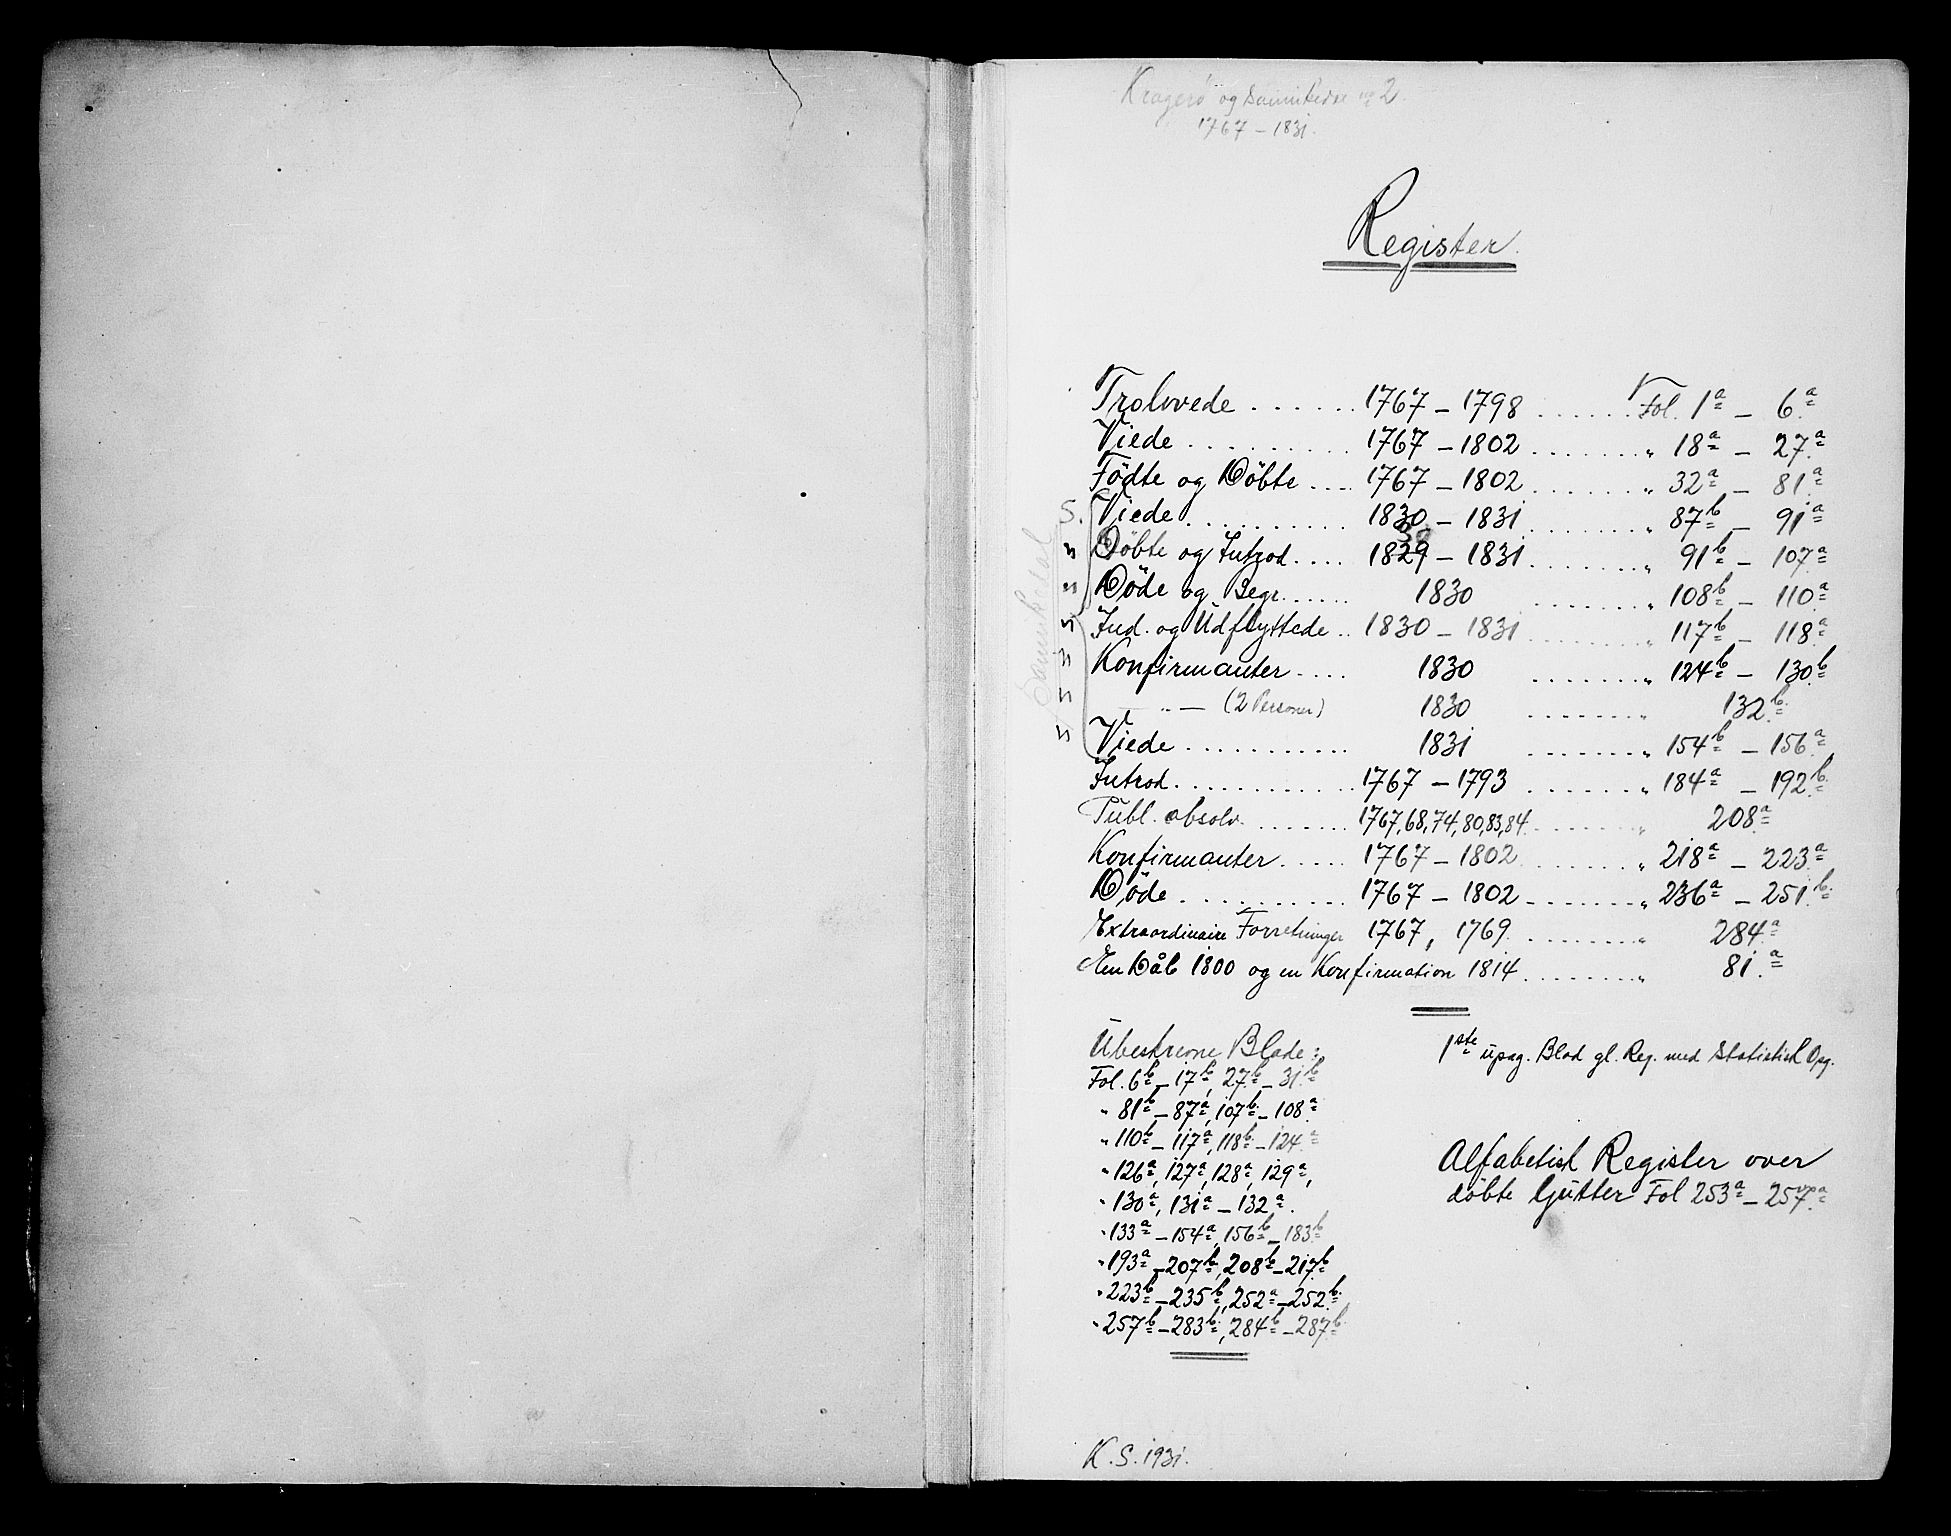 Kragerø og Sannikedal No 2
1767 – 1831.
Register.
Trolovede . . . . . . 1767 – 1798 . . . . . . Fol. 1a – 6a
Viede . . . . . . . . . . 1767 – 1802 . . . . . . . " 18a – 27a
Födte og Döbte . . . . 1767 – 1802 . . . . . . . " 32a – 81a
S. Viede . . . . . . . . . . 1830 – 1831 . . . . . . . " 87b – 91a
" Döbte og Introd. . . . . 1829 30 – 1831 . . . . . . . " 91b – 107a
" Döde og Begr. . . . . . 1830 . . . . . . . " 108b – 110a
" Ind. og Udflyttede . . 1830 – 1831 . . . . . . . " 117b – 118a
" Konfirmanter . . . . 1830 . . . . . . . " 124b – 130b
" — " — (2 Personer) 1830 . . . . . . . " 132b
" Viede . . . . . . . . . . . 1831 . . . . . . . " 154b – 156a
Sannikedal
Introd. . . . . . . . . . . . 1767 – 1793 . . . . . . . " 184a – 192b
Publ. absolv. . . . . . . . 1767, 68, 74, 80, 83, 84 . . . . . . . " 208a
Konfirmanter . . . . . 1767 – 1802 . . . . . . . " 218a – 223a
Döde . . . . . . . . . . 1767 – 1802 . . . . . . . " 236a – 251b
Extraordinaire Forretninger 1767, 1769 . . . . . . . " 284a
En Dåb 1800 og en Konfirmation 1814 . . . . . . . " 81a
Ubeskrevne Blade:
Fol. 6b – 17b, 27b – 31b
" 81b – 87a, 107b – 108a
" 110b – 117a, 118b – 124a
" 126a, 127a, 128a, 129a,
" 130a, 131a – 132a.
" 133a – 154a, 156b – 183b
" 193a – 207b, 208b – 217b
" 223b – 235b, 252a – 252b
" 257b – 283b, 284b – 287b
1ste upag. Blad gl. Reg. med Statistisk Opg.
Alfabetisk Register over
döbte Gutter Fol 253a – 257a
K. S. 1931.